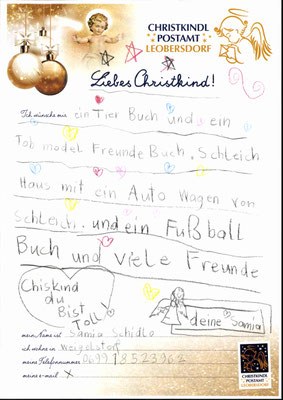 CHRISTKINDL
POSTAMT
LEOBERSDORF
Liebes Christkind!
Ich wünsche mir ein Tier Buch und ein
Tob model Freunde Buch. Schleich
Haus mit ein Auto Wagen von
Schleich. und ein Fußball
Buch und viele Freunde
Chiskind
du
Bist
Toll!
deine Samia
mein Name ist Samia Schidlo
ich wohne in Weigelsdorf
meine Telefonnummer 0699 18523962
meine e-mail x
CHRISTKINDL
POSTAMT
LEOBERSDORF